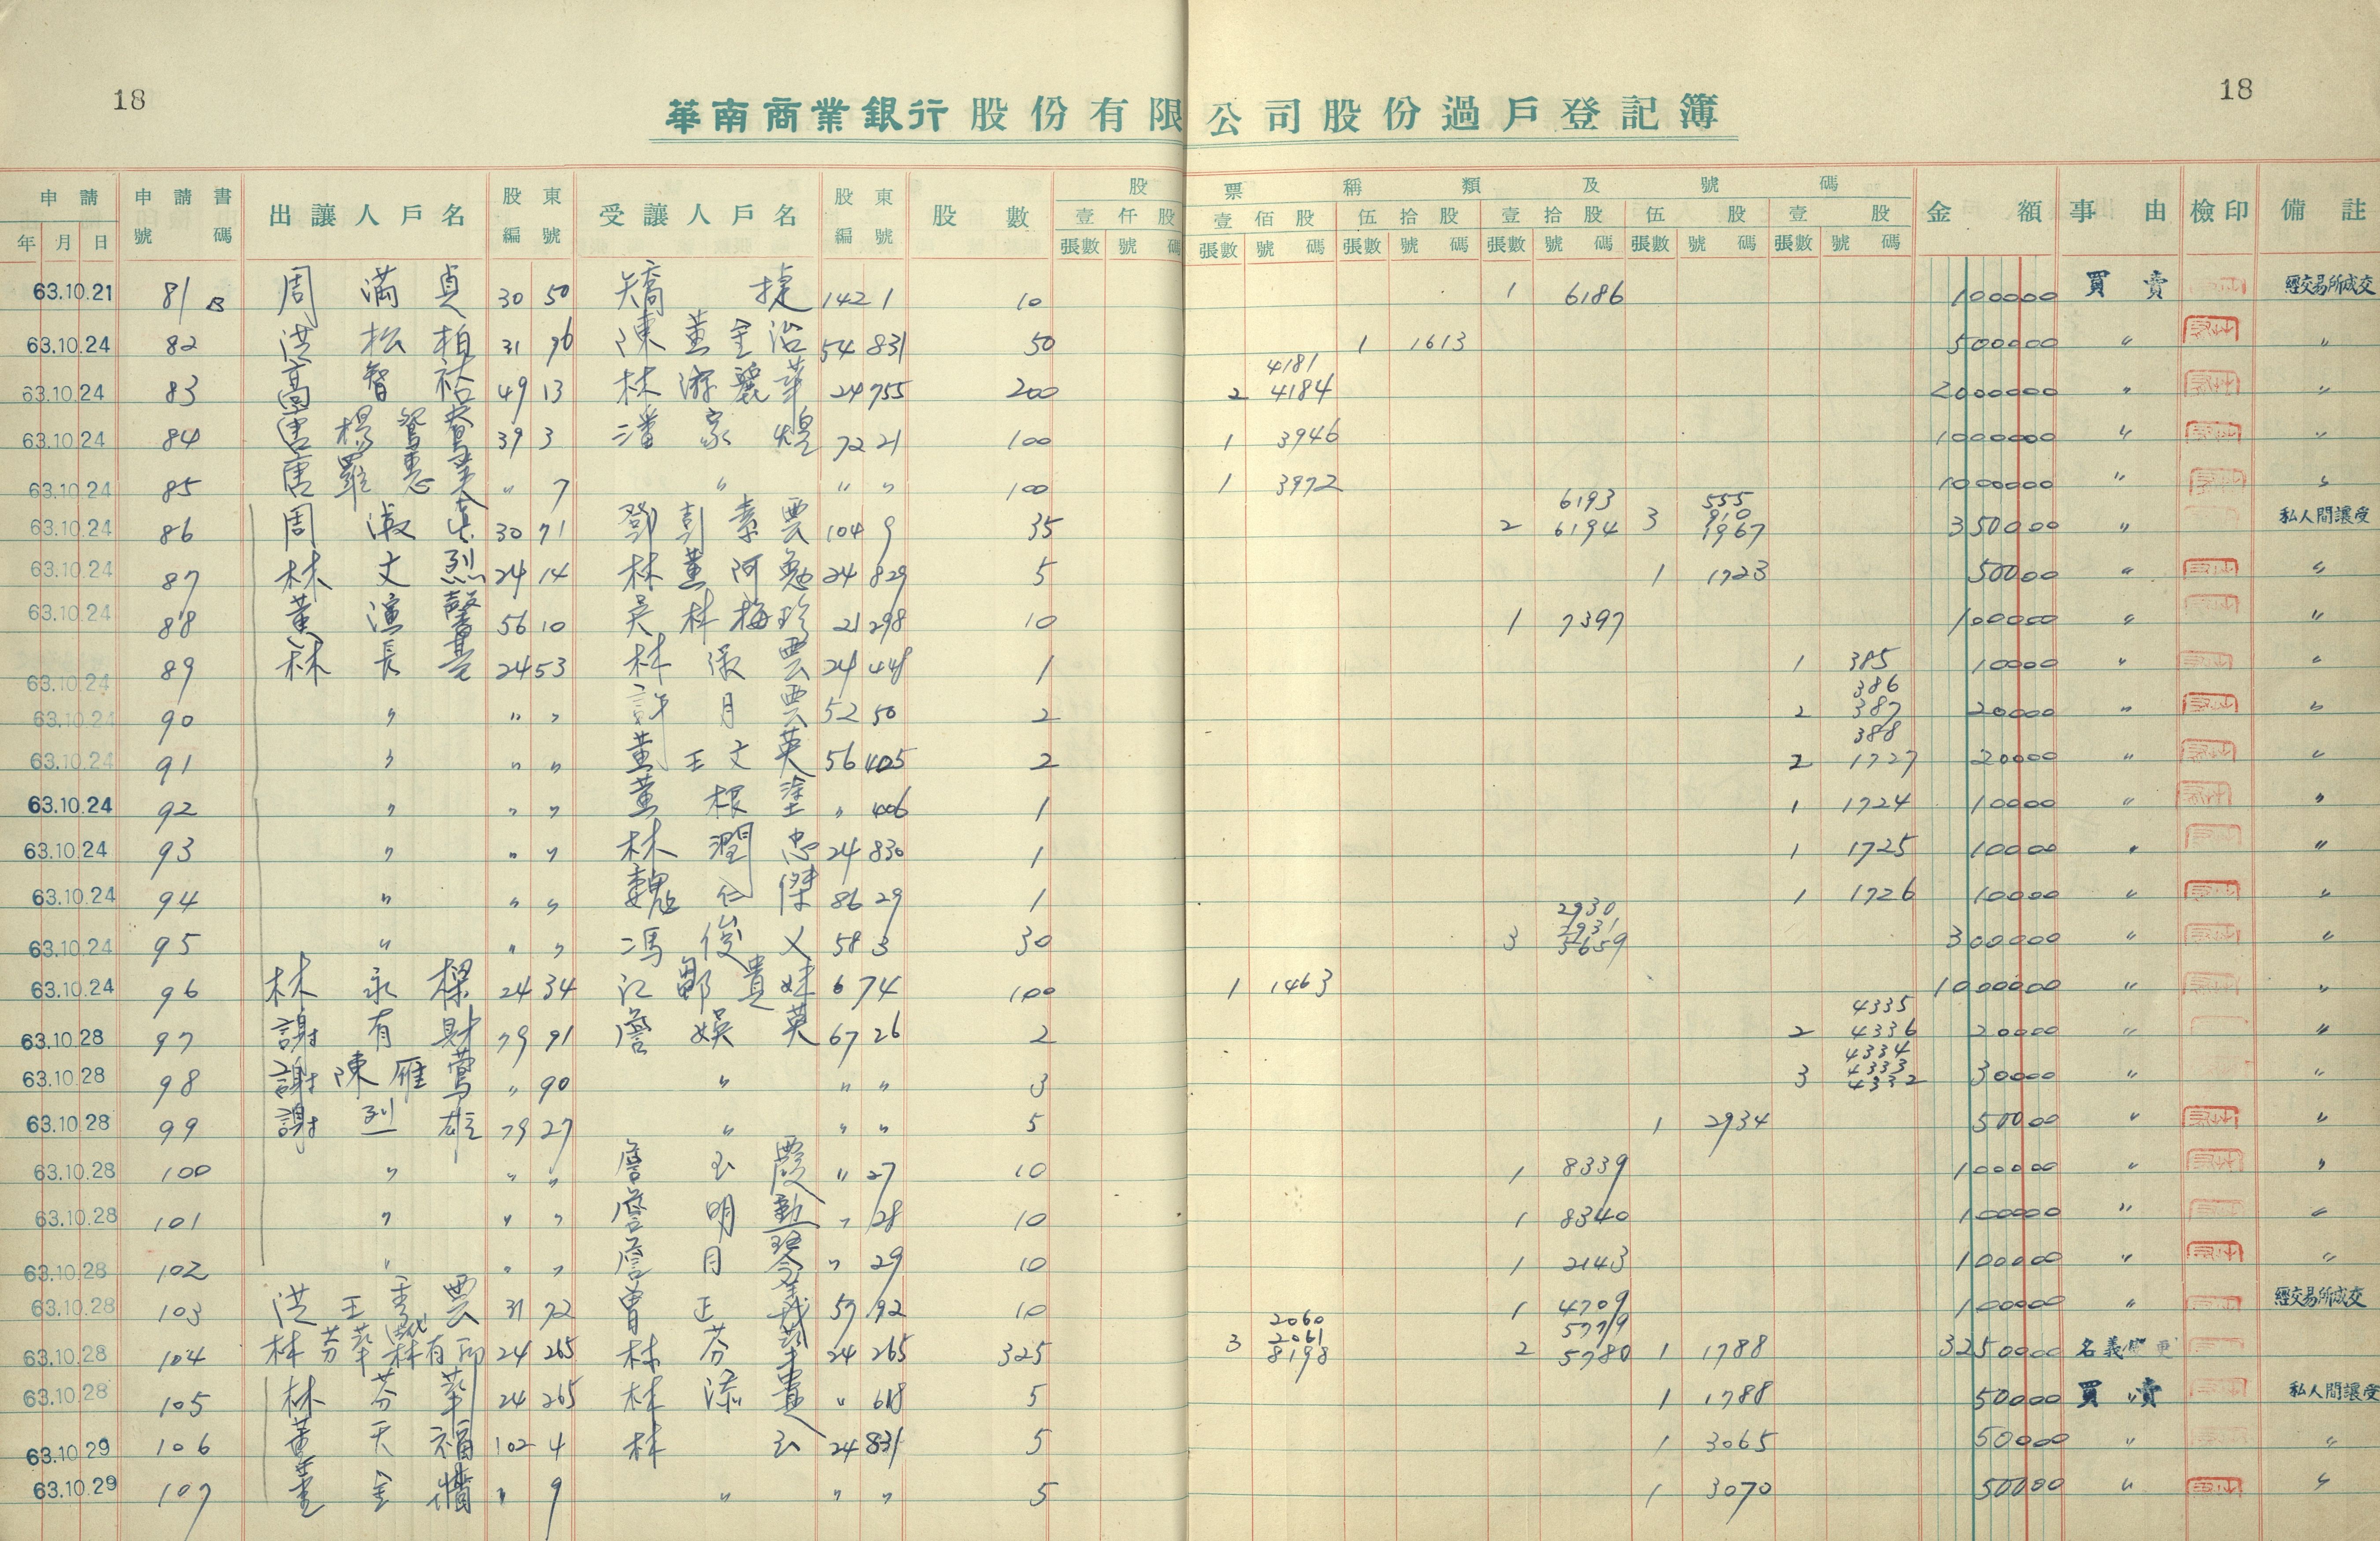 18
18
華南商業銀行股份有限公司股份過戶登記簿
申請 年 月 日 申請書號碼 出讓人戶名 股東編號 受讓人戶名 股東編號 股數 股票稱類及號碼 金額 事由 檢印 備註
壹仟股 壹佰股 伍拾股 壹拾股 伍股 壹股
張數 號碼 張數 號碼 張數 號碼 張數 號碼 張數 號碼 張數 號碼
63.10.21 81 B 周滿貞 30 50 矯捷 142 1 10 1 6186 100000 買賣 經交易所成交
63.10.24 82 洪松柏 31 76 陳黃金治 54 831 50 1 1613 500000 〃 〃
63.10.24 83 高智祐 49 13 林游麗華 24 755 200 2 4181 4184 2000000 〃 〃
63.10.24 84 唐楊鴛鴦 39 3 潘家焜 72 21 100 1 3946 1000000 〃 〃
63.10.24 85 唐羅惠美 〃 7 〃 〃 〃 100 1 3972 1000000 〃 〃
63.10.24 86 周淑貞 30 71 鄧彭素雲 104 9 35 2 6193 6194 3 555 910 1967 350000 〃 私人間讓受
63.10.24 87 林文烈 24 14 林黃阿勉 24 829 5 1 1723 50000 〃 〃
63.10.24 88 黃演馨 56 10 吳林梅珍 21 298 10 1 7397 100000 〃 〃
63.10.24 89 林長基 24 53 林淑雲 24 448 1 1 385 10000 〃 〃
63.10.24 90 〃 〃 〃 許月雲 52 50 2 2 386 387 20000 〃 〃
63.10.24 91 〃 〃 〃 黃王文英 56 405 2 2 388 1727 20000 〃 〃
63.10.24 92 〃 〃 〃 黃根塗 〃 406 1 1 1724 10000 〃 〃
63.10.24 93 〃 〃 〃 林潤忠 24 830 1 1 1725 10000 〃 〃
63.10.24 94 〃 〃 〃 魏仁傑 86 29 1 1 1726 10000 〃 〃
63.10.24 95 〃 〃 〃 馮俊乂 58 3 30 3 2930 2931 5659 300000 〃 〃
63.10.24 96 林永樑 24 34 江鄭貴妹 6 74 100 1 1463 1000000 〃 〃
63.10.28 97 謝有財 79 91 詹娛英 67 26 2 2 4335 4336 20000 〃 〃
63.10.28 98 謝陳雁鶯 〃 90 〃 〃 〃 3 3 4334 4333 4332 30000 〃 〃
63.10.28 99 謝烈雄 79 27 〃 〃 〃 5 1 2934 50000 〃 〃
63.10.28 100 〃 〃 〃 詹玉霞 〃 27 10 1 8339 100000 〃 〃
63.10.28 101 〃 〃 〃 詹明勳 〃 28 10 1 8340 100000 〃 〃
63.10.28 102 〃 〃 〃 詹月琴 〃 29 10 1 2143 100000 〃 〃
63.10.28 103 洪王秀雲 31 72 曾正義 57 92 10 1 4709 100000 〃 經交易所成交
63.10.28 104 林芬華 林有 24 265 林芬華 24 265 325 3 2060 2061 8198 2 5779 5780 1 1788 3250000 名義變更
63.10.28 105 林芬華 24 265 林添貴 〃 618 5 1 1788 50000 買賣 私人間讓受
63.10.29 106 黃天福 102 4 林玉 24 831 5 1 3065 50000 〃 〃
63.10.29 107 金 〃 9 〃 〃 〃 5 1 3070 50000 〃 〃